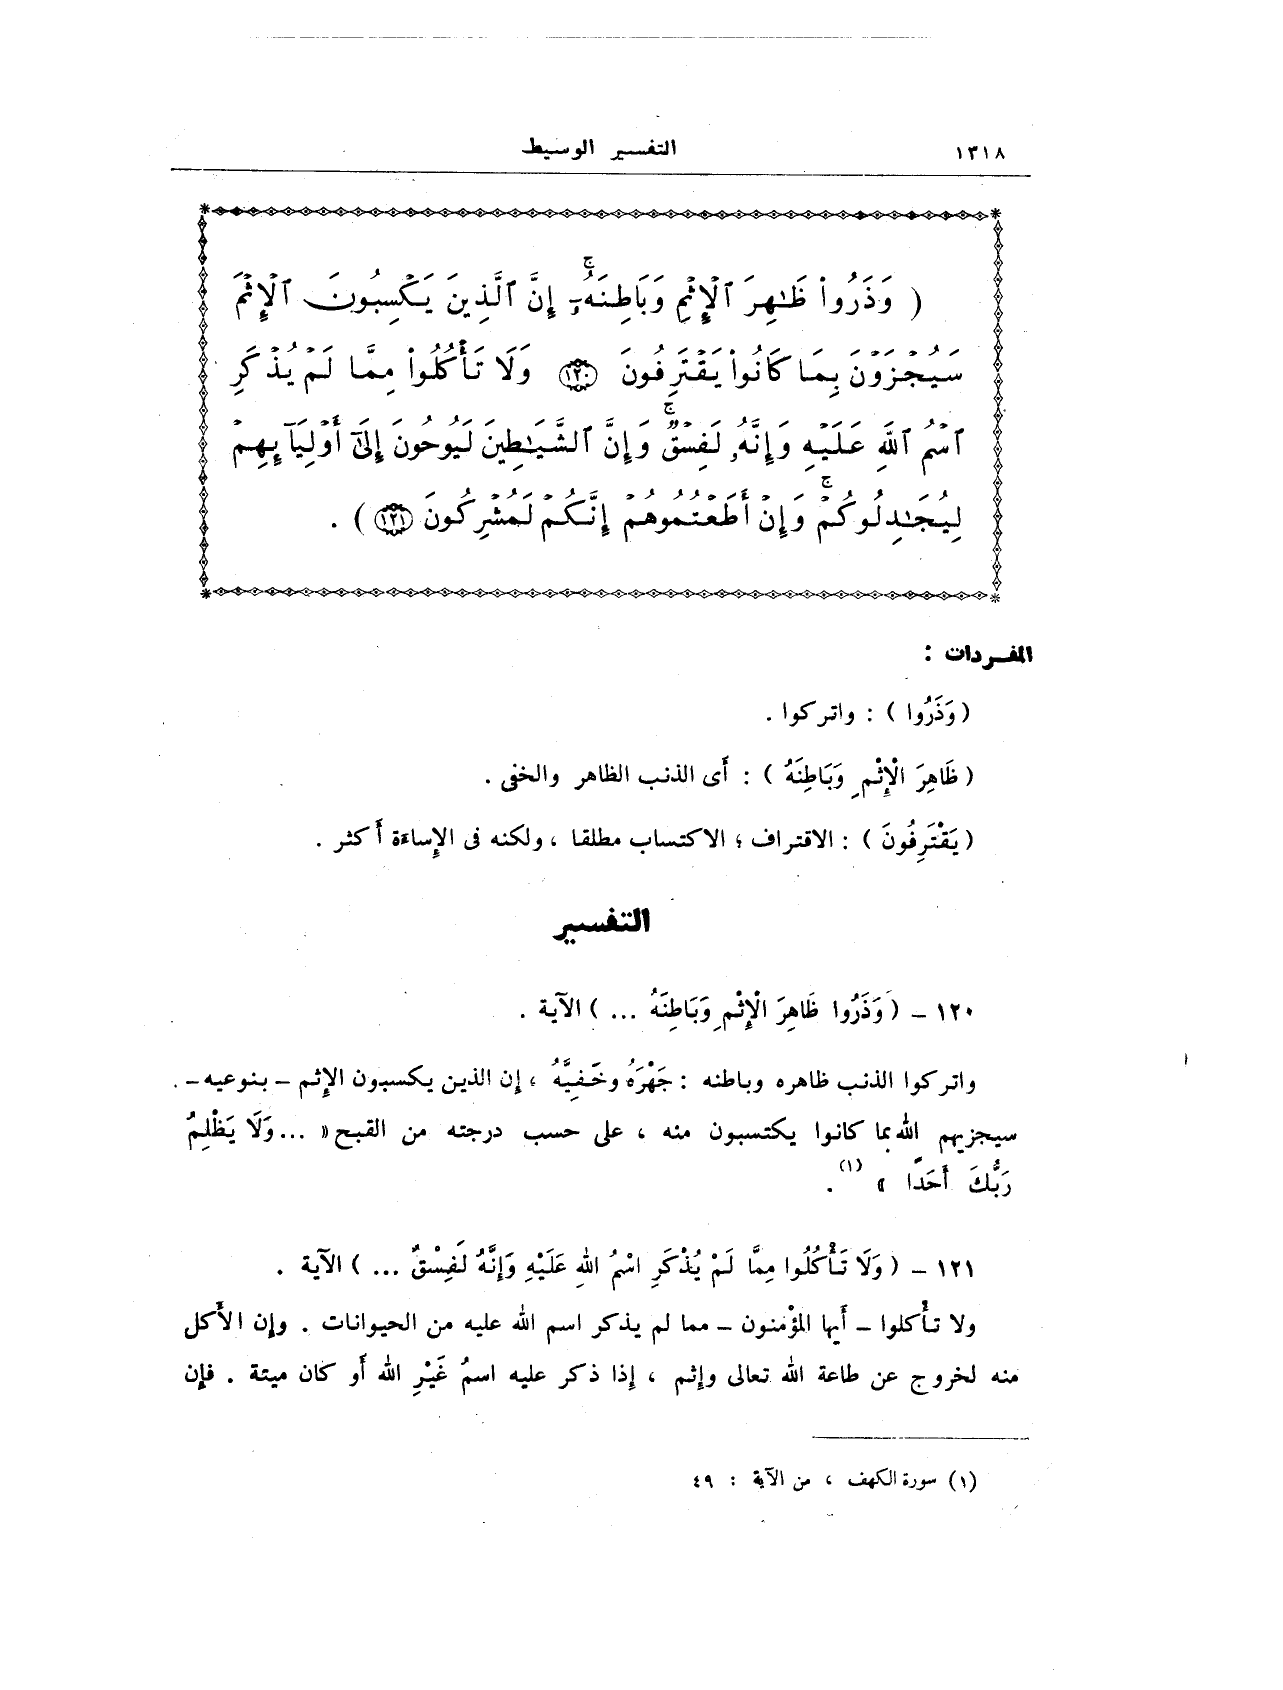 ١٣١٨ التفسير الوسيط
( وَذَرُواْ ظَٰهِرَ ٱلْإِثْمِ وَبَاطِنَهُۥٓ ۚ إِنَّ ٱلَّذِينَ يَكْسِبُونَ ٱلْإِثْمَ
سَيُجْزَوْنَ بِمَا كَانُواْ يَقْتَرِفُونَ ١٢٠ وَلَا تَأْكُلُواْ مِمَّا لَمْ يُذْكَرِ
ٱسْمُ ٱللَّهِ عَلَيْهِ وَإِنَّهُۥ لَفِسْقٌ ۗ وَإِنَّ ٱلشَّيَٰطِينَ لَيُوحُونَ إِلَىٰٓ أَوْلِيَآئِهِمْ
لِيُجَٰدِلُوكُمْ ۖ وَإِنْ أَطَعْتُمُوهُمْ إِنَّكُمْ لَمُشْرِكُونَ ١٢١ ) .
المفردات :
( وَذَرُوا ) : واتركوا .
( ظَاهِرَ الْإِثْمِ وَبَاطِنَهُ ) : أى الذنب الظاهر والخفى .
( يَقْتَرِفُونَ ) : الاقتراف ؛ الاكتساب مطلقا ، ولكنه فى الإساءة أكثر .
التفسير
١٢٠ - ( وَذَرُوا ظَاهِرَ الْإِثْمِ وَبَاطِنَهُ ... ) الآية .
واتركوا الذنب ظاهره وباطنه : جَهْرَهُ وخَفِيَّهُ ، إن الذين يكسبون الإثم - بنوعيه - .
سيجزيهم الله بما كانوا يكتسبون منه ، على حسب درجته من القبح « ... وَلَا يَظْلِمُ
رَبُّكَ أَحَدًا » (١) .
١٢١ - ( وَلَا تَأْكُلُوا مِمَّا لَمْ يُذْكَرِ اسْمُ اللهِ عَلَيْهِ وَإِنَّهُ لَفِسْقٌ ... ) الآية .
ولا تأْكلوا - أيها المؤْمنون - مما لم يذكر اسم الله عليه من الحيوانات . وإن الأكل
منه لخروج عن طاعة الله تعالى وإثم ، إذا ذكر عليه اسمُ غَيْرِ الله أو كان ميتة . فإن
(١) سورة الكهف ، من الآية : ٤٩